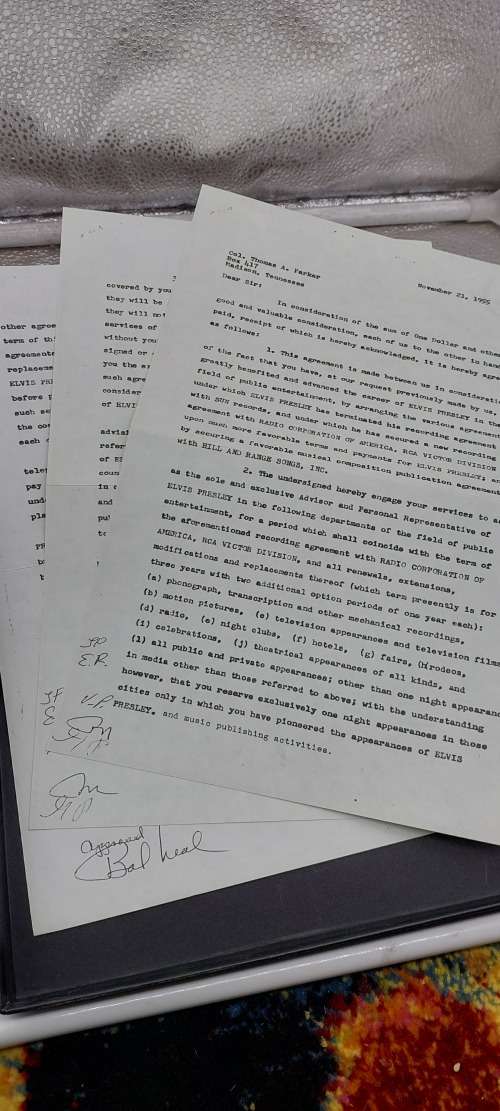 November 21, 1955
Col. Thomas A. Parker
Box 417
Madison, Tennessee
Dear Sir:
In consideration of the sum of One Dollar and other
good and valuable consideration, each of us to the other in hand
paid, receipt of which is hereby acknowledged, it is hereby agre
as follows:
1. This agreement is made between us in considerati
of the fact that you have, at our request previously made by us,
greatly benefited and advanced the career of ELVIS PRESLEY in the
field of public entertainment, by arranging the various agreement
under which ELVIS PRESLEY has terminated his recording agreement
with SUN records, and under which he has secured a new recording
agreement with RADIO CORPORATION OF AMERICA, RCA VICTOR DIVISION
upon much more favorable terms and payments for ELVIS PRESLEY; an
by securing a favorable musical composition publication agreement
with HILL AND RANGE SONGS, INC.
2. The undersigned hereby engage your services to a
as the sole and exclusive Advisor and Personal Representative of
ELVIS PRESLEY in the following departments of the field of public
entertainment, for a period which shall coincide with the term of
the aforementioned recording agreement with RADIO CORPORATION OF
AMERICA, RCA VICTOR DIVISION, and all renewals, extensions,
modifications and replacements thereof (which term presently is for
three years with two additional option periods of one year each):
(a) phonograph, transcription and other mechanical recordings,
(b) motion pictures, (c) television appearances and television films
(d) radio, (e) night clubs, (f) hotels, (g) fairs, (h) rodeos,
(i) celebrations, (j) theatrical appearances of all kinds, and
(l) all public and private appearances; other than one night appearanc
in media other than those referred to above; with the understanding
however, that you reserve exclusively one night appearances in those
cities only in which you have pioneered the appearances of ELVIS
PRESLEY. and music publishing activities.
V.P.
covered by you
they will be
they will not
services of
without you
signed or
you the
such agre
consider
of ELVI
advi
refer
of E
coun
in
and
pu
to
E.P.
other agree
term of thi
agreements
replaceme
ELVIS PR
before
such
the co
each
tele
pay
und
pla
PR
Approved
Bob Neal